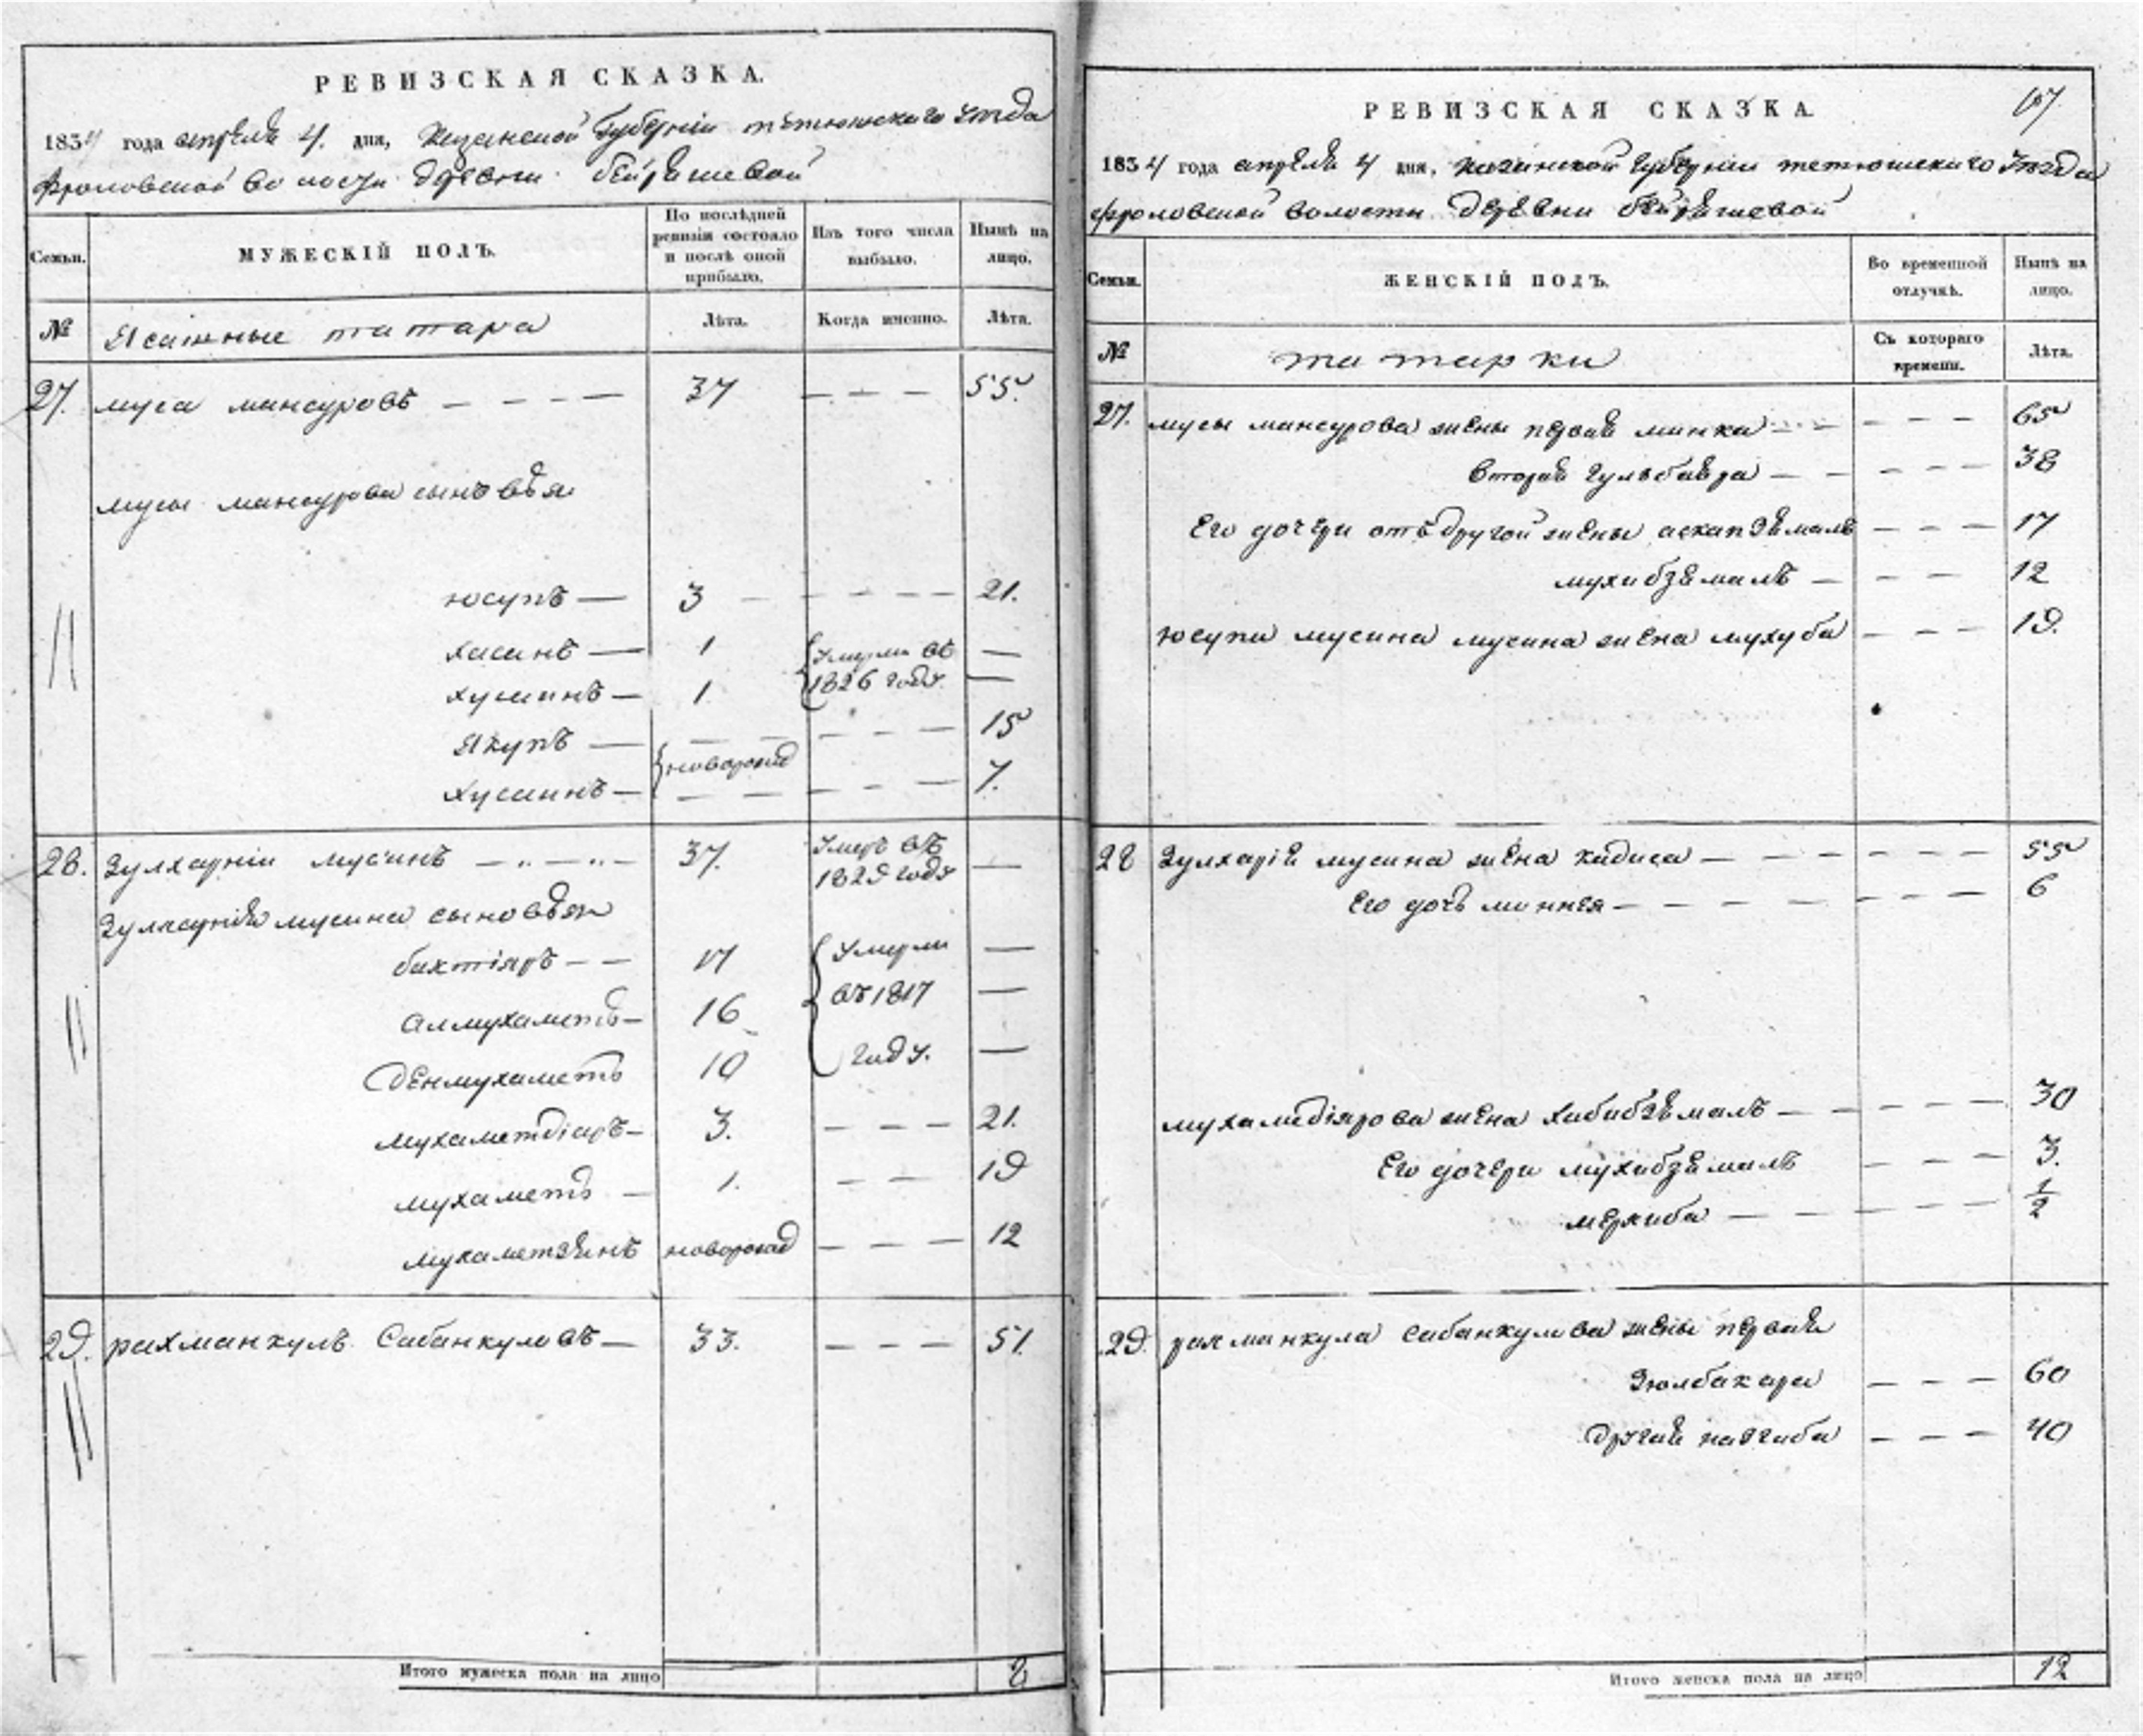 РЕВИЗСКАЯ СКАЗКА.
1834 года апреля 4. дня, Казанской Губерніи тетюшскаго уезда
фроловской волости деревни бейряшевой
Семьи.
МУЖЕСКІЙ ПОЛЪ.
По последней ревизіи состояло и послѣ оной прибыло.
Изъ того числа выбыло.
Нынѣ на лицо.
№ Ясашные татара Лѣта. Когда именно. Лѣта.
27. муса мансуровъ — — — — 37 — — — 55.
мусы мансурова сыновья
юсупъ — 3 — — — — — 21.
хасанъ — 1 умерли въ —
хусаинъ — 1 1826 году. —
Якупъ — — — — — — 15
новорожд
Хусаинъ — — — — — — 7.
28. Зулхарніи мусинъ — — — 37. Умеръ въ 1829 году —
Зулхарнія мусина сыновья
бахтіяръ — — 17 Умерли —
алмухаметъ — 16 въ 1817 —
денмухаметъ 10 году. —
мухаметдіаръ — 3. — — — 21.
мухаметъ — 1. — — 19
мухаметзянъ новорожд — — — 12
29. рахманкулъ Сабанкуловъ — 33. — — — 51.
Итого мужеска пола на лицо 8
67.
РЕВИЗСКАЯ СКАЗКА.
1834 года апреля 4 дня, Казанской губерніи тетюшскаго уезда
фроловской волости деревни бейряшевой
Семьи.
ЖЕНСКІЙ ПОЛЪ.
Во временной отлучкѣ.
Нынѣ на лицо.
№ татарки Съ котораго времени. Лѣта.
27. мусы мансурова жены первая минка — — — — 65
вторая Гульбаира — — — — — 38
Его дочери отъ другой жены — — — 17
мухибзямалъ — — — — 12
юсупа мусина мусина жена мухуба — — — 19.
28 Зулхарія мусина жена хадиса — — — — — — 55
Его дочь миннея — — — — — — — — 6
мухамедіярова жена хабибзямалъ — — — — — 30
Его дочери мухибзямалъ — — — 3.
мерхиба — — — — — — 1/2
29. рахманкула сабанкулова жены первая
Зюлбахара — — — 60
другая — — — 40
Итого женска пола на лицо 12